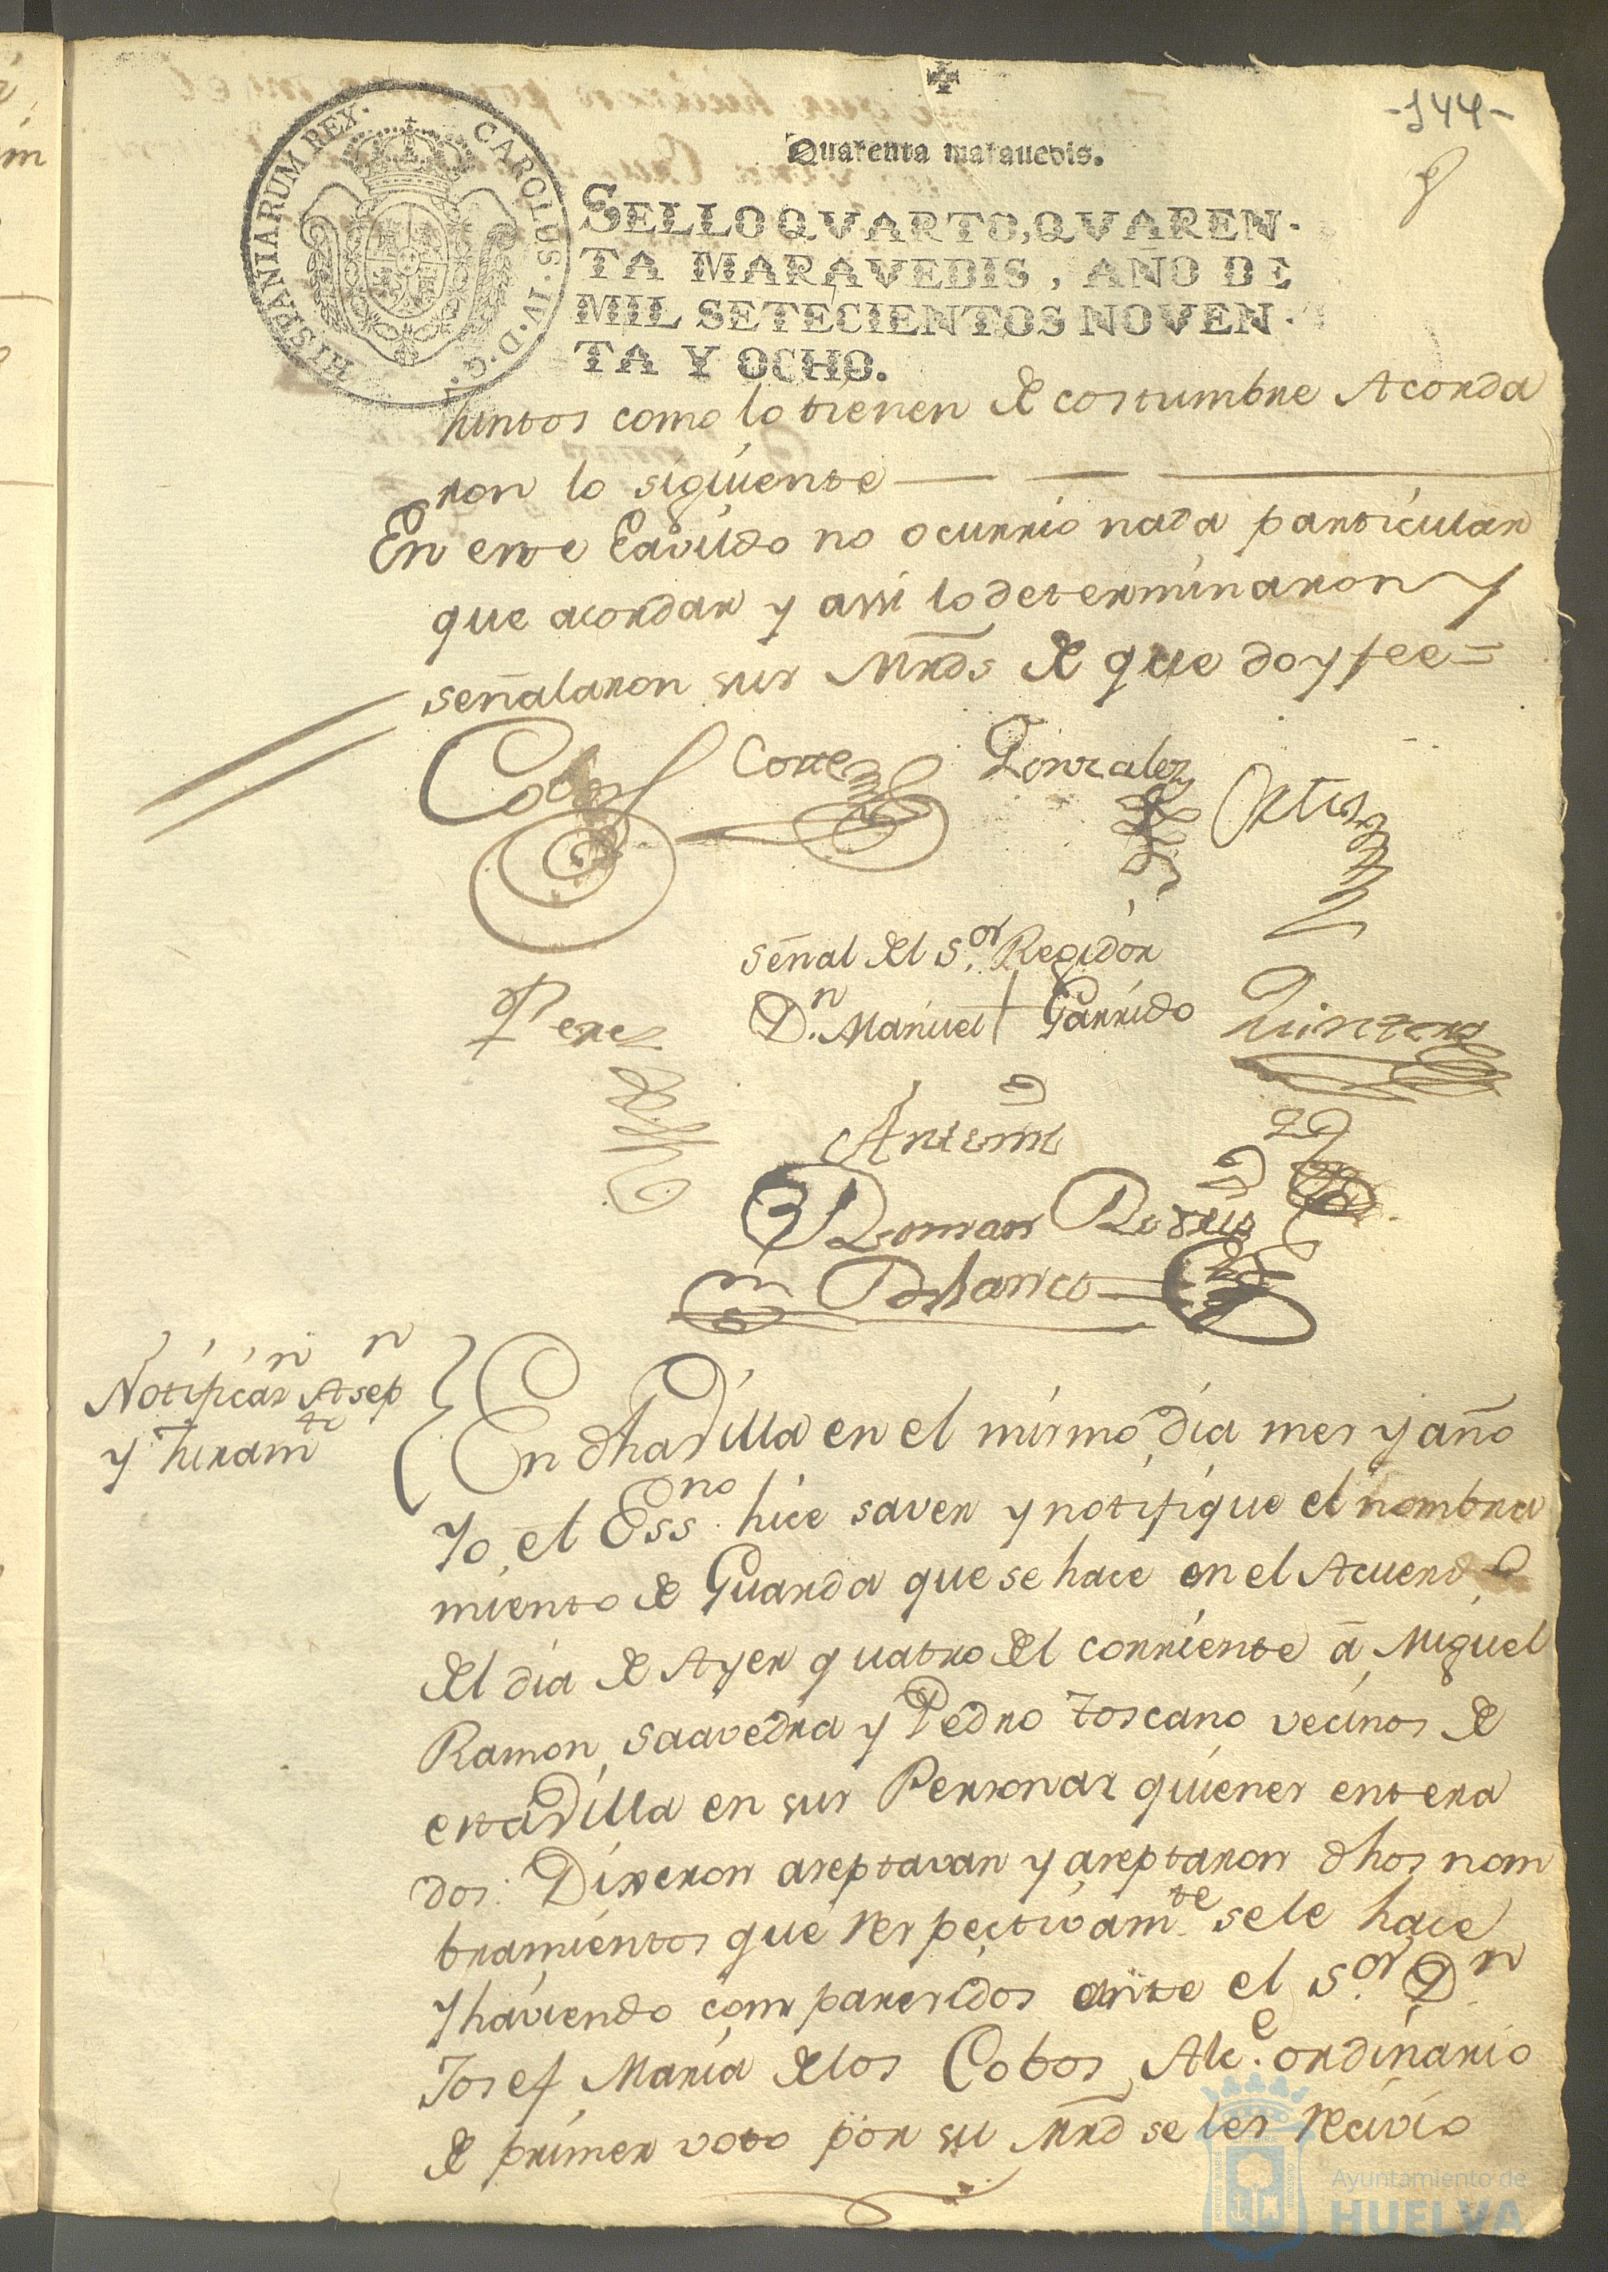 -144-
Quarenta maravedis.
HISPANIARUM REX. CAROLUS. IV. D. G.
SELLO QVARTO, QVAREN-
TA MARAVEDIS, AÑO DE
MIL SETECIENTOS NOVEN-
TA Y OCHO.
Juntos como lo tienen de costumbre Acorda
ron lo siguiente
En este Cavildo no ocurrio nada particular
que acordar y assi lo determinaron y
señalaron sus Mrds de que doy fee=
Cobos Cortes Gonzalez Ortis
señal del S.or Regidor
Perez D.n Manuel + Garrido Quintero
Antemi
Roman Rodrig
Polanco
Notificaz.n Asep.n
y Juram.to
En dha Villa en el mismo dia mes y año
Yo el Ess.no hice saver y notifique el nombra
miento de Guarda que se hace en el Acuerdo
del dia de Ayer quatro del corriente á Miguel
Ramon Saavedra y Pedro Toscano vecinos de
esta Villa en sus Personas quienes entera
dos: Dixeron aseptavan y aseptaron dhos nom
bramientos que respectivam.te se le hace
y haviendo comparesidos ante el S.or D.n
Josef Maria de los Cobos Alc.e ordinario
de primer voto por su Mrd se les recivio
Ayuntamiento de
HUELVA